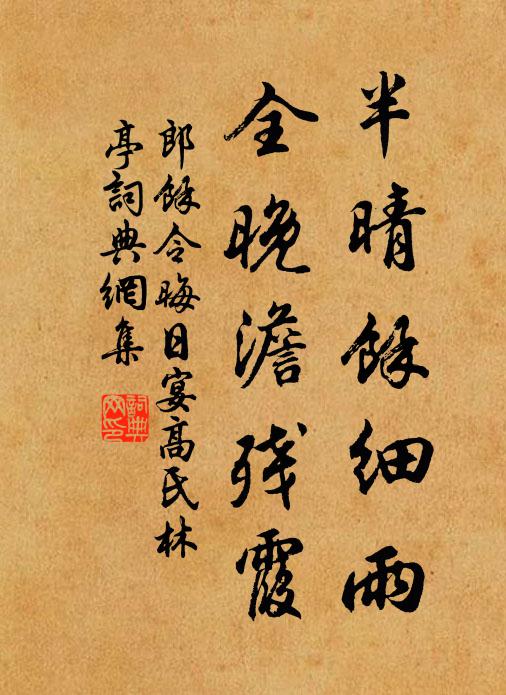 半晴餘細雨
全晚澹残霞
郎餘令晦日宴高氏林
亭詞典網集
詞典
网印